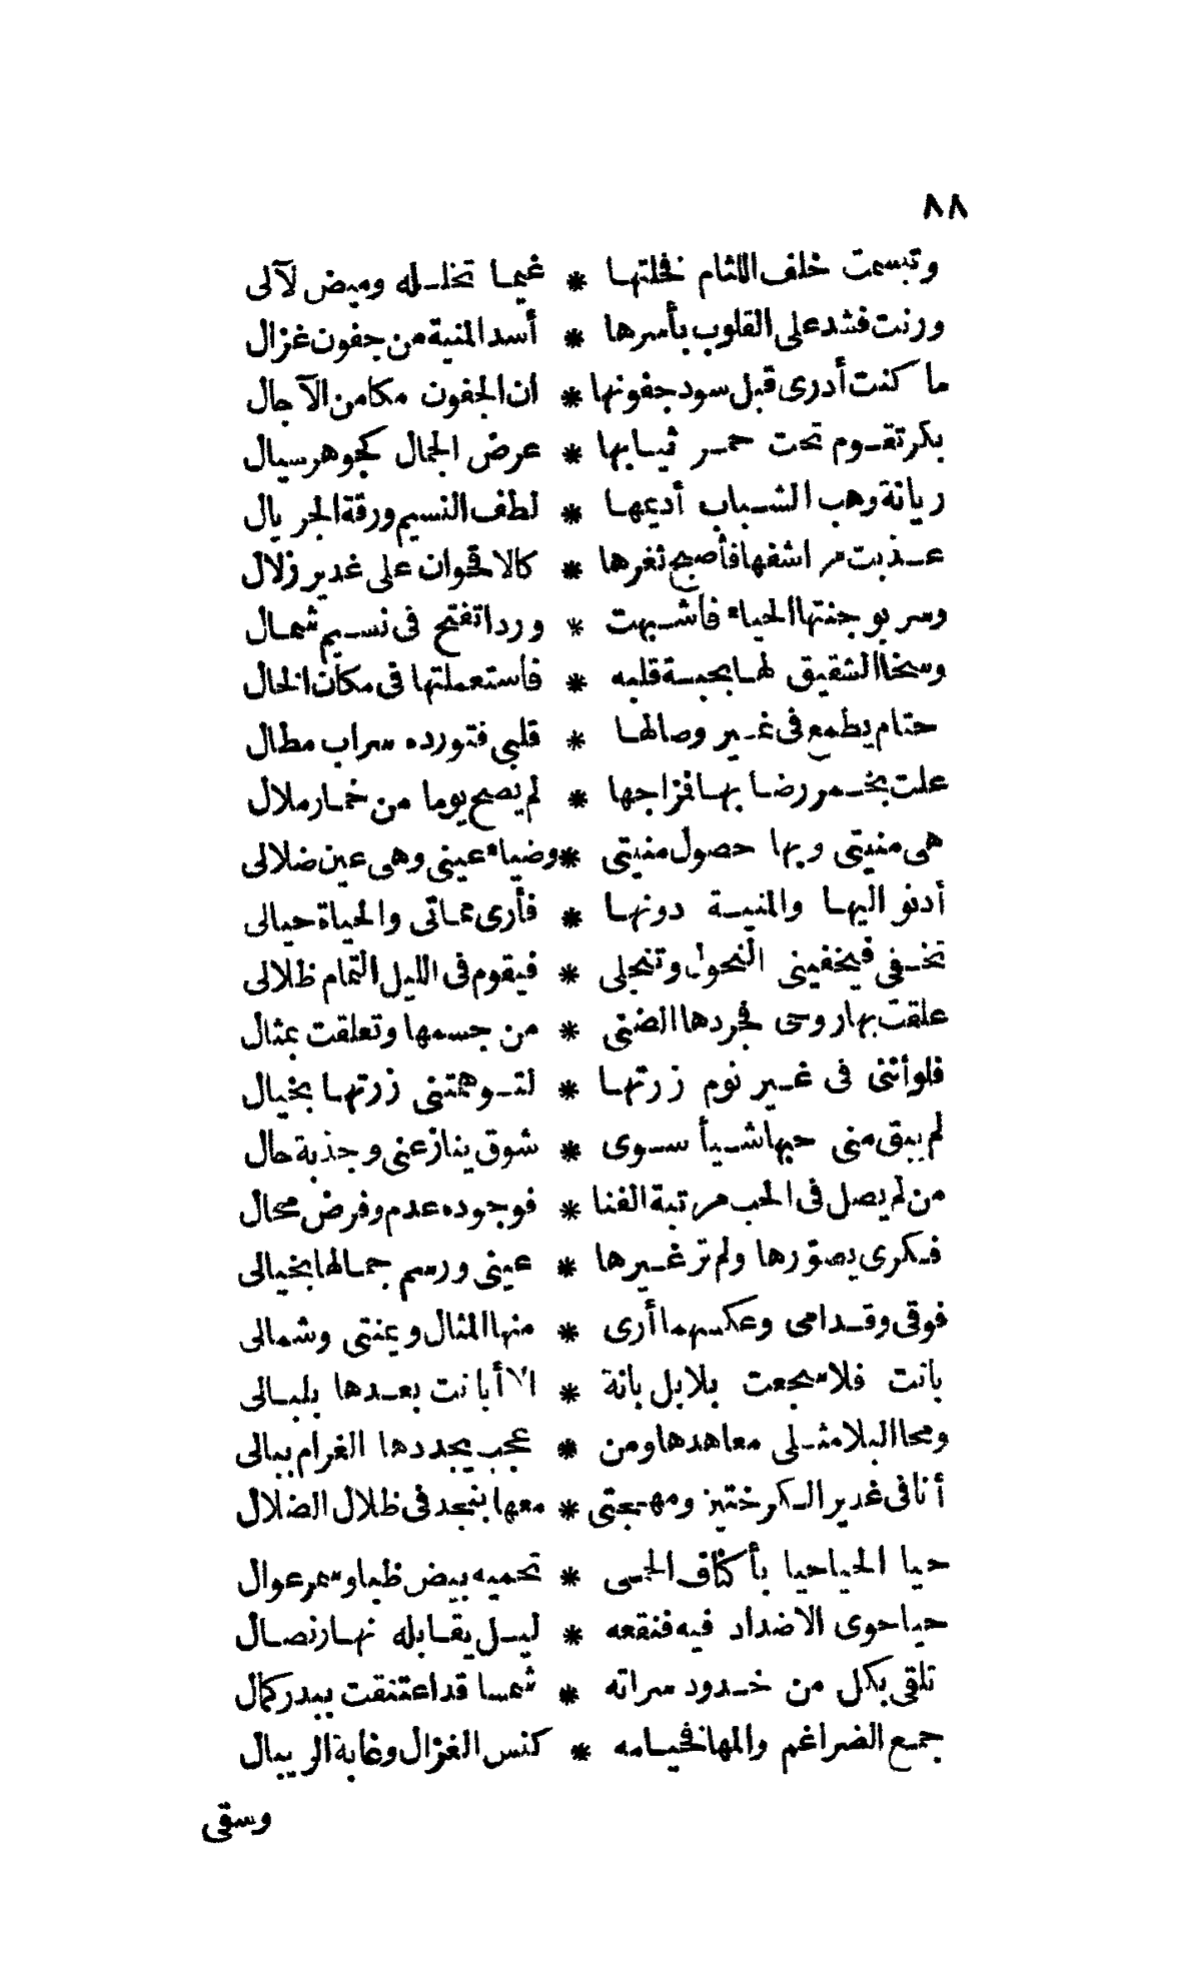 ٨٨
وتبسمت خلف اللثام فخلتها * غيما تخلله وميض لآلى
ورنت فشد على القلوب بأسرها * أسد المنية من جفون غزال
ما كنت أدرى قبل سود جفونها * ان الجفون مكامن الآجال
بكر تقوم تحت حمر ثيابها * عرض الجمال كجوهر سيال
ريانة وهب الشباب أديمها * لطف النسيم ورقة الجريال
عذبت مراشفها فأصبح ثغرها * كالاقحوان على غدير زلال
وسرى بوجنتها الحياء فأشبهت * وردا تفتح فى نسيم شمال
وسخا الشقيق لها بحبة قلبه * فاستعملتها فى مكان الخال
حتام يطمع فى غير وصالها * قلبى فتورده سراب مطال
علت بخمر رضا بها فمزاجها * لم يصح يوما من خمار ملال
هى منيتى وبها حصول منيتى * وضياء عينى وهى عين ضلالى
أدنو اليها والمنية دونها * فأرى مماتى والحياة حيالى
تخفى فيخفينى النحول وتنجلى * فيقوم فى الليل التمام ظلالى
علقت بها روحى فجردها الضنى * من جسمها وتعلقت بمثال
فلو أننى فى غير نوم زرتها * لتوهمتنى زرتها بخيال
لم يبق منى حبها شيأ سوى * شوق ينازعنى وجذبة حال
من لم يصل فى الحب مرتبة الفنا * فوجوده عدم وفرض محال
فكرى يصوّرها ولم تر غيرها * عينى ورسم جمالها بخيالى
فوقى وقدامى وعكسهما أرى * منها المثال ويمنتى وشمالى
بانت فلا سجعت بلابل بانة * الا أبانت بعدها بلبالى
ومحا البلا مثلى معاهدها ومن * عجب يجددها الغرام ببالى
أنا فى غدير الكرختين ومهجتى * معها بنجد فى ظلال الضلال
حيا الحيا حيا بأكناف الحمى * تحميه بيض ظبا وسمر عوال
حيا حوى الاضداد فيه فنقعه * ليل يقابله نهار نصال
تلقى بكل من خدود سراته * شمسا قد اعتنقت ببدر كمال
جمع الضراغم والمها فخيامه * كنس الغزال وغابة الريبال
وسقى